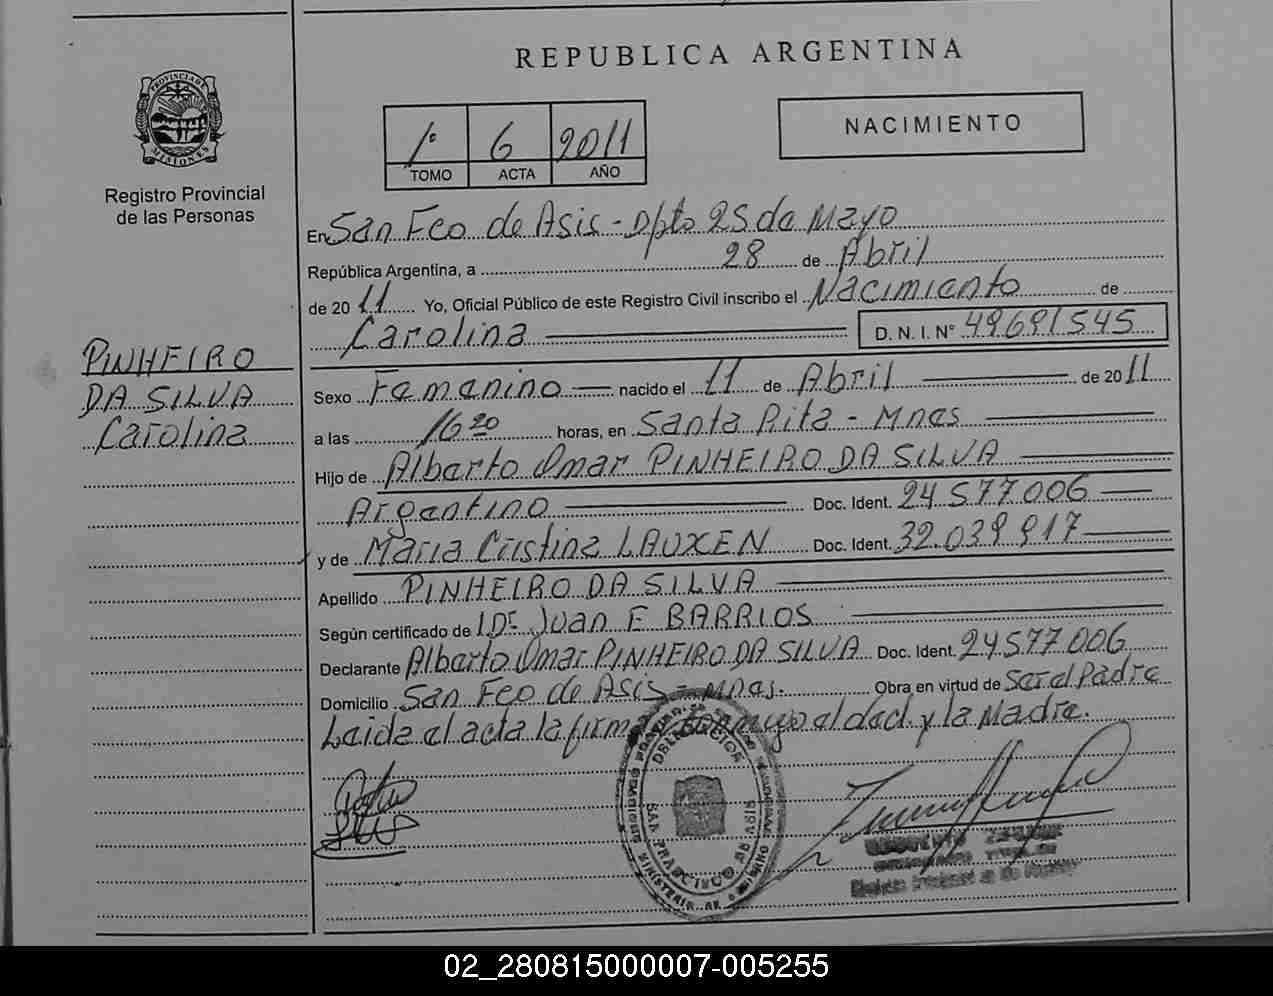 REPUBLICA ARGENTINA
PROVINCIA DE MISIONES
Registro Provincial
de las Personas
1º 6 2011
TOMO ACTA AÑO
NACIMIENTO
En San Fco de Asis - Dpto 25 de Mayo
República Argentina, a 28 de Abril
de 2011 Yo, Oficial Público de este Registro Civil inscribo el Nacimiento de
Carolina D. N. I. Nº 49691545
PINHEIRO
DA SILVA
Carolina
Sexo Femenino nacido el 11 de Abril de 2011
a las 16 20 horas, en Santa Rita - Mnes
Hijo de Alberto Omar PINHEIRO DA SILVA
Argentino Doc. Ident. 24.577.006
y de Maria Cristina LAUXEN Doc. Ident. 32.039.917
Apellido PINHEIRO DA SILVA
Según certificado de Dr Juan E BARRIOS
Declarante Alberto Omar PINHEIRO DA SILVA Doc. Ident. 24577.006
Domicilio San Fco de Asis - Mnes. Obra en virtud de Ser el Padre
Leida el acta la firma el decl. y la Madre.
DELEGACION
SAN FRANCISCO DE ASIS
02_280815000007-005255